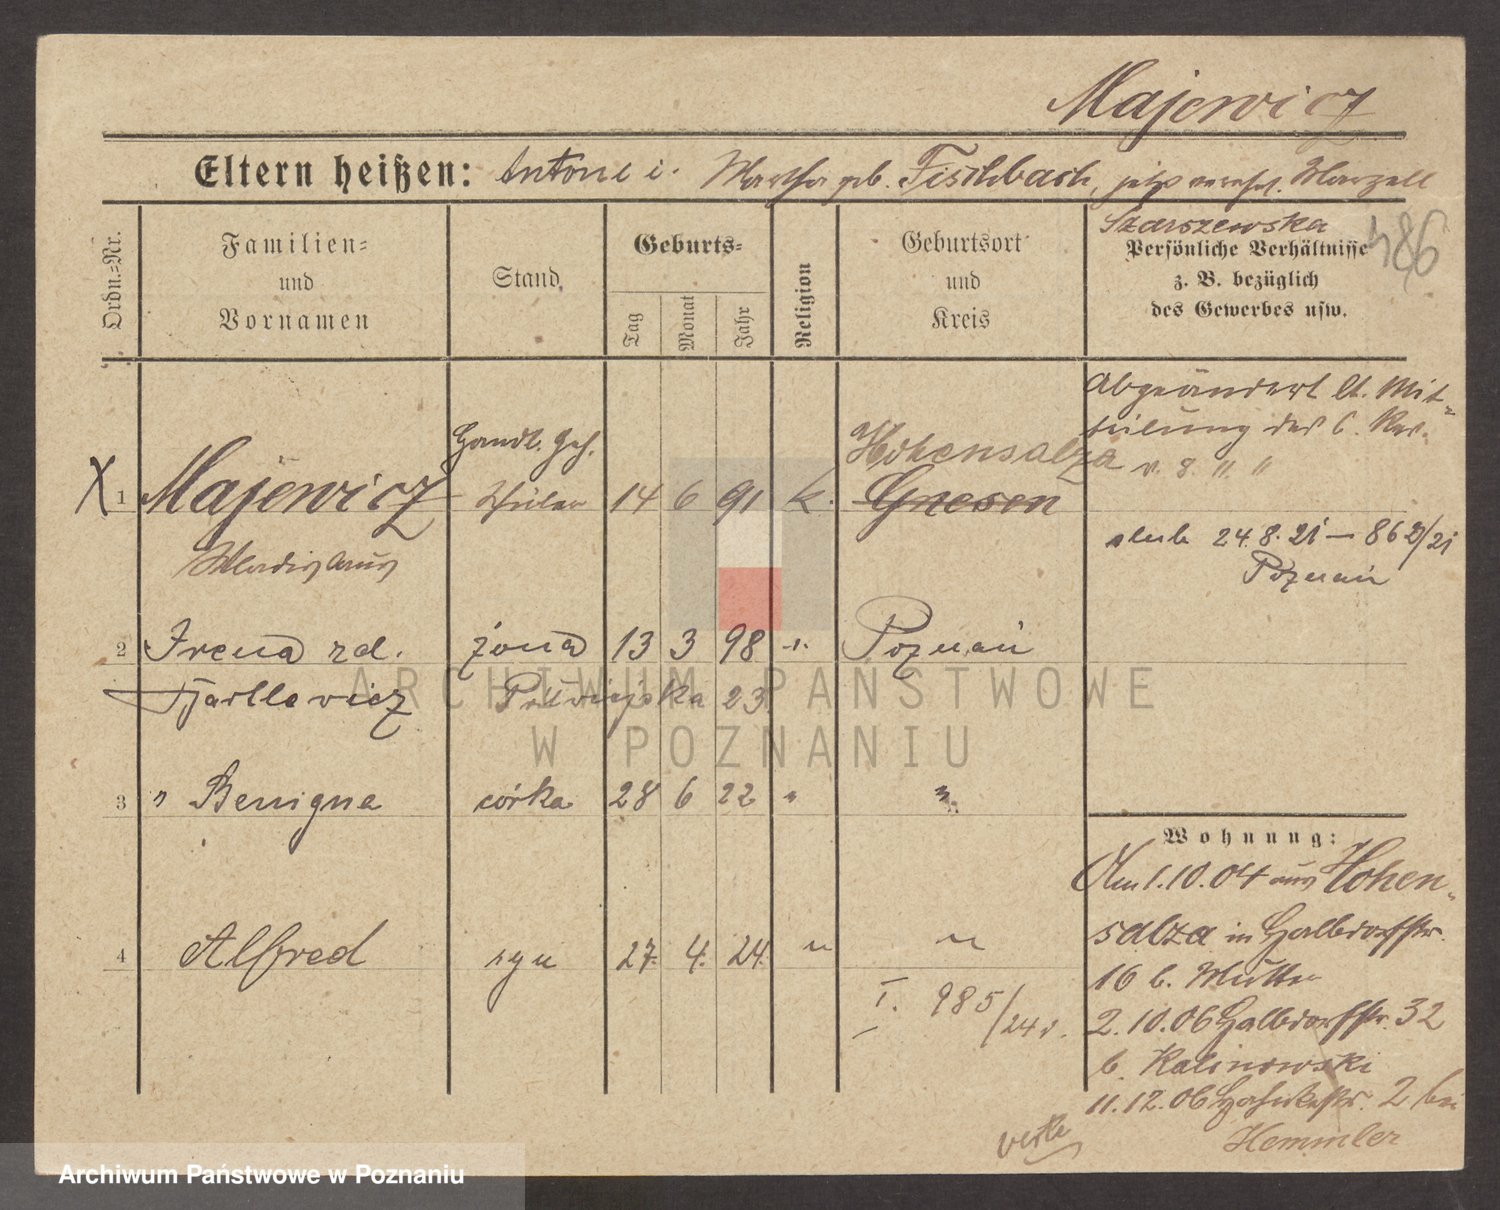 Majewicz
Eltern heißen: Antone i. Martha geb. Fischbach, jetzt vereh. Marzell
Szarszewska
486
Ordn.=Nr.
Familien=
und
Vornamen
Stand
Geburts=
Tag
Monat
Jahr
Religion
Geburtsort
und
Kreis
Persönliche Verhältnisse
z. B. bezüglich
des Gewerbes usw.
Abgeändert lt. Mit=
teilung des 6. Rev.
v. 8. 11. 11
X 1 Majewicz Handl. Geh. Schüler 14 6 91 k. Hohensalza Gnesen
Wladislaus
ślub 24.8.21 — 862/21
Poznań
2 Irena zd. żona 13 3 98 " Poznań
Bartlewicz 23.
3 " Benigna córka 28 6 22 " "
4 Alfred syn 27. 4. 24. " "
I. 985/24 r.
Wohnung:
Am 1.10.04 aus Hohen-
salza in Halbdorfstr.
16 b. Mutter
2.10.06 Halbdorfstr. 32
b. Kalinowski
11.12.06 2 bei
Hemmler
verte
ARCHIWUM PAŃSTWOWE
W POZNANIU
Archiwum Państwowe w Poznaniu